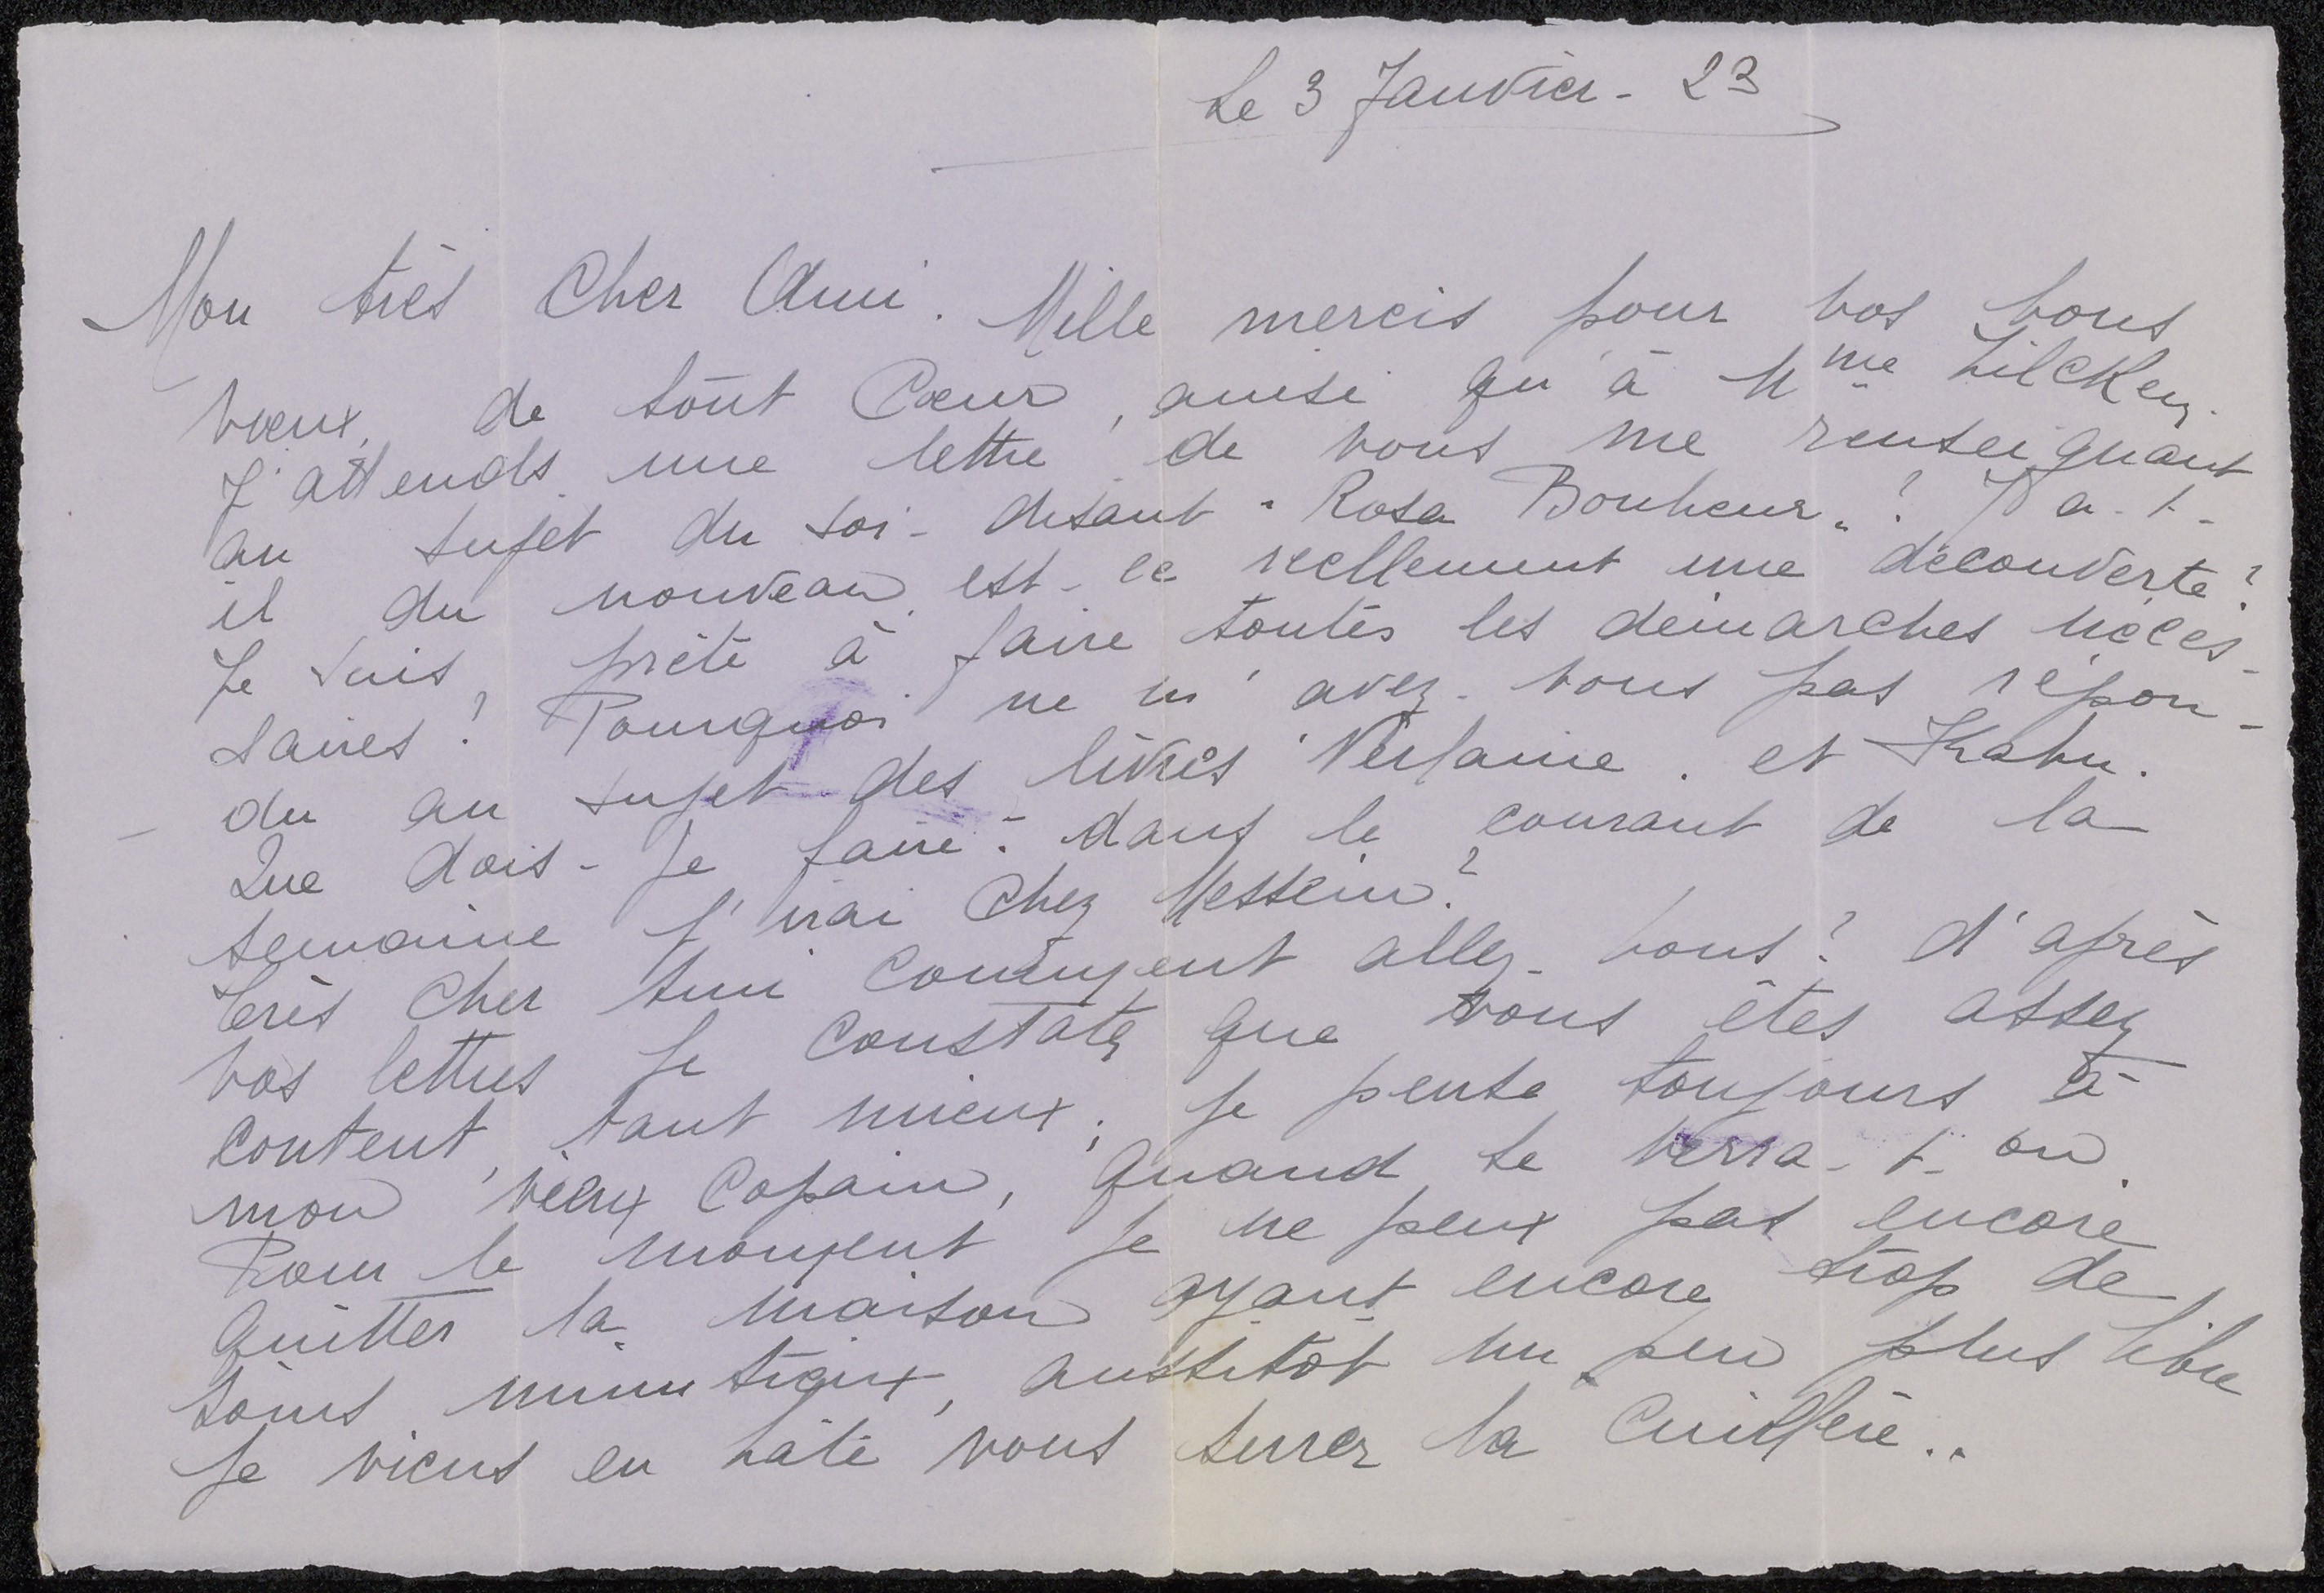 Le 3 Janvier - 23
Mon très Cher Ami. Mille mercis pour vos bons
vœux, de tout Cœur, ainsi qu'à Mme Zilcken.
J'attends une lettre de vous me renseignant
au sujet du soi-disant "Rosa Bonheur"? Y a-t-
il du nouveau, est-ce réellement une découverte?
Je suis prête à faire toutes les démarches néces-
saires? Pourquoi ne m'avez-vous pas répon-
du au sujet des livres Verlaine. et Kahn.
Que dois-je faire? dans le courant de la
semaine j'irai chez Messein?
Très cher Ami comment allez-vous? d'après
vos lettres je constate que vous êtes assez
content, tant mieux; je pense toujours à
mon vieux Copain, quand se verra-t-on.
Pour le moment je ne peux pas encore
quitter la maison ayant encore trop de
soins minutieux, aussitôt un peu plus libre
je viens en hâte vous serrer la Cuillère..